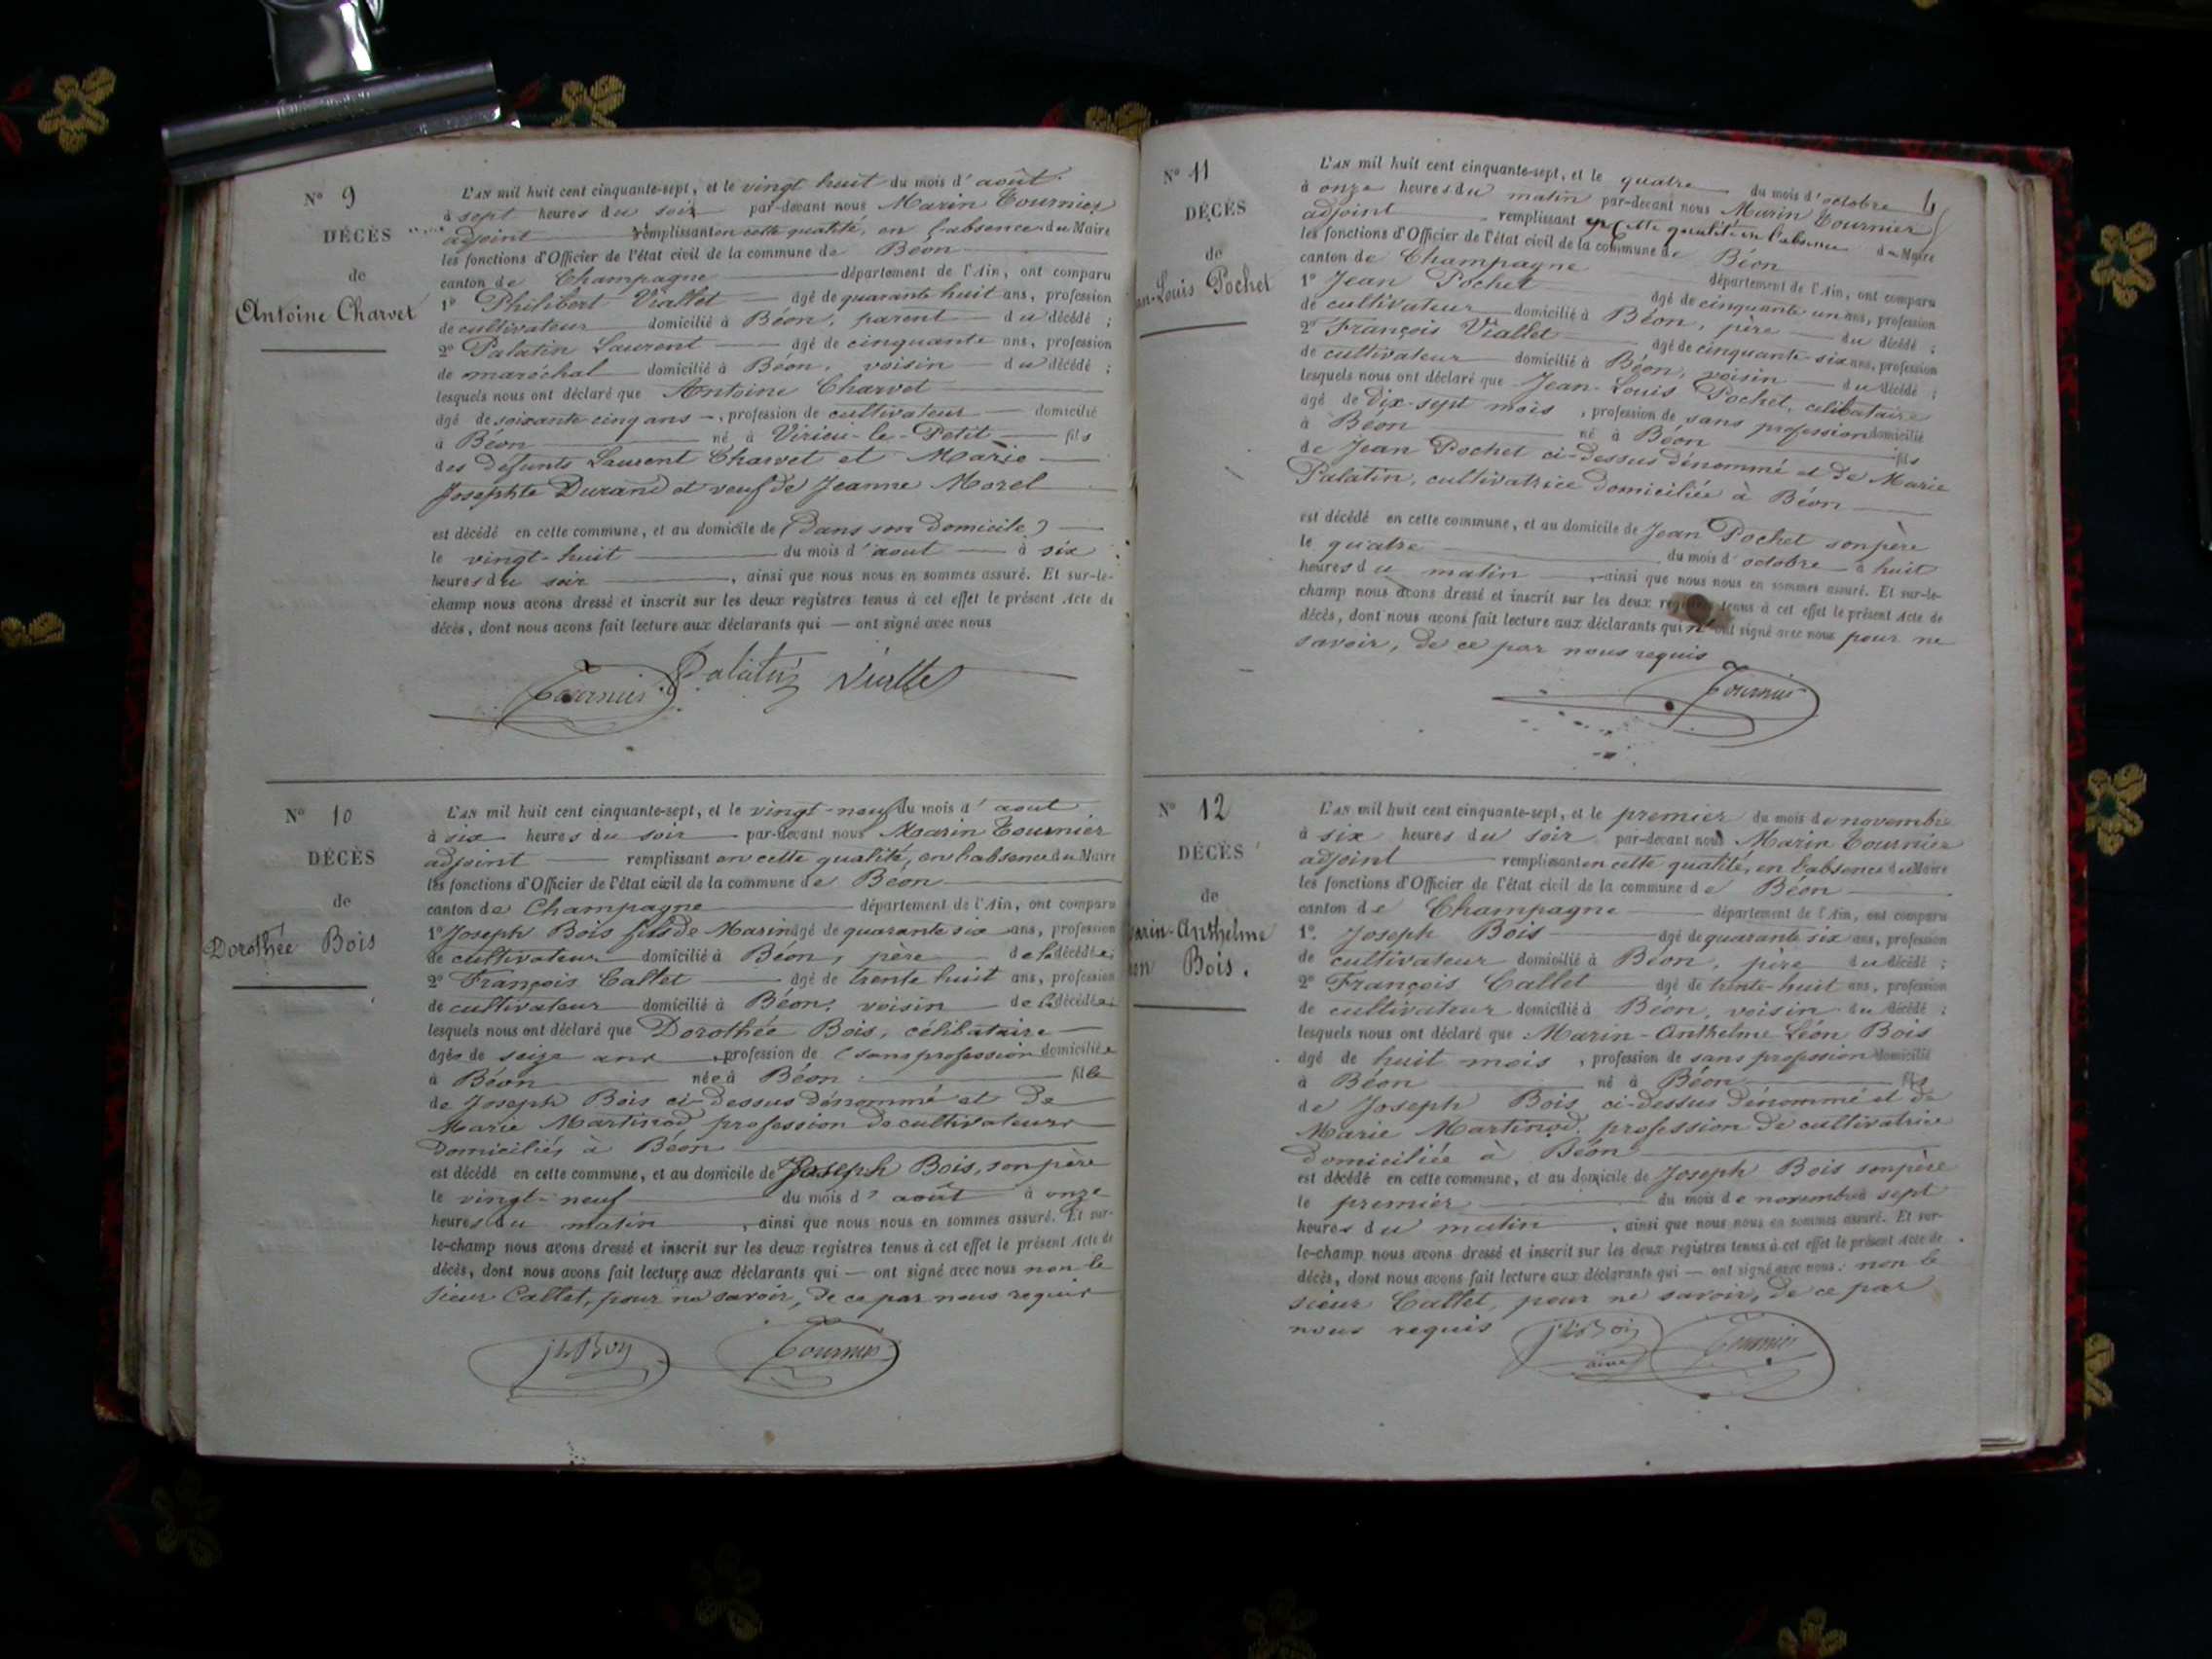 N° 9
DÉCÈS
de
Antoine Charvet
L'AN mil huit cent cinquante-sept, et le vingt huit du mois d'août
à sept heures du soir par-devant nous Marin Tournier
adjoint remplissant en cette qualité, en l'absence du Maire
les fonctions d'Officier de l'état civil de la commune de Béon
canton de Champagne département de l'Ain, ont comparu
1° Philibert Viallet âgé de quarante huit ans, profession
de cultivateur domicilié à Béon, parent du décédé ;
2° Palatin Laurent âgé de cinquante ans, profession
de maréchal domicilié à Béon, voisin du décédé ;
lesquels nous ont déclaré que Antoine Charvet
âgé de soixante cinq ans, profession de cultivateur domicilié
à Béon né à Virieu-le-Petit fils
des défunts Laurent Charvet et Marie
Josephte Durand et veuf de Jeanne Morel
est décédé en cette commune, et au domicile de (dans son domicile)
le vingt-huit du mois d'aout à six
heures du soir, ainsi que nous nous en sommes assuré. Et sur-le-
champ nous avons dressé et inscrit sur les deux registres tenus à cet effet le présent Acte de
décès, dont nous avons fait lecture aux déclarants qui — ont signé avec nous
Tournier Palatin Viallet
N° 10
DÉCÈS
de
Dorothée Bois
L'AN mil huit cent cinquante-sept, et le vingt-neuf du mois d'aout
à six heures du soir par-devant nous Marin Tournier
adjoint remplissant en cette qualité, en l'absence du Maire
les fonctions d'Officier de l'état civil de la commune de Béon
canton de Champagne département de l'Ain, ont comparu
1° Joseph Bois fils de Marin âgé de quarante six ans, profession
de cultivateur domicilié à Béon, père de la décédée ;
2° François Callet âgé de trente huit ans, profession
de cultivateur domicilié à Béon, voisin de la décédée
lesquels nous ont déclaré que Dorothée Bois, célibataire
âgée de seize ans, profession de (sans profession domiciliée
à Béon née à Béon fille
de Joseph Bois ci-dessus dénommé et de
Marie Martinod profession de cultivateurs
domiciliés à Béon
est décédé en cette commune, et au domicile de Joseph Bois, son père
le vingt-neuf du mois d'août à onze
heures du matin, ainsi que nous nous en sommes assuré. Et sur-
le-champ nous avons dressé et inscrit sur les deux registres tenus à cet effet le présent Acte de
décès, dont nous avons fait lecture aux déclarants qui — ont signé avec nous non le
sieur Callet, pour ne savoir, de ce par nous requis
jh Bois Tournier
4
N° 11
DÉCÈS
de
Louis Pochet
L'AN mil huit cent cinquante-sept, et le quatre du mois d'octobre
à onze heures du matin par-devant nous Marin Tournier
adjoint remplissant en cette qualité en l'absence du Maire
les fonctions d'Officier de l'état civil de la commune de Béon
canton de Champagne département de l'Ain, ont comparu
1° Jean Pochet âgé de cinquante un ans, profession
de cultivateur domicilié à Béon, père du décédé ;
2° François Viallet âgé de cinquante-six ans, profession
de cultivateur domicilié à Béon, voisin du décédé ;
lesquels nous ont déclaré que Jean-Louis Pochet, célibataire
âgé de dix-sept mois, profession de sans profession domicilié
à Béon né à Béon fils
de Jean Pochet ci-dessus dénommé et de Marie
Palatin, cultivatrice domiciliée à Béon
est décédé en cette commune, et au domicile de Jean Pochet son père
le quatre du mois d'octobre à huit
heures du matin, ainsi que nous nous en sommes assuré. Et sur-le-
champ nous avons dressé et inscrit sur les deux registres tenus à cet effet le présent Acte de
décès, dont nous avons fait lecture aux déclarants qui n'ont signé avec nous pour ne
savoir, de ce par nous requis
Tournier
N° 12
DÉCÈS
de
arin-Anthelme
on Bois.
L'AN mil huit cent cinquante-sept, et le premier du mois de novembre
à six heures du soir par-devant nous Marin Tournier
adjoint remplissant en cette qualité, en l'absence du Maire
les fonctions d'Officier de l'état civil de la commune de Béon
canton de Champagne département de l'Ain, ont comparu
1°. Joseph Bois âgé de quarante six ans, profession
de cultivateur domicilié à Béon, père du décédé ;
2° François Callet âgé de trente-huit ans, profession
de cultivateur domicilié à Béon, voisin du décédé ;
lesquels nous ont déclaré que Marin-Anthelme Léon Bois
âgé de huit mois, profession de sans profession domicilié
à Béon né à Béon fils
de Joseph Bois ci-dessus dénommé et de
Marie Martinod, profession de cultivatrice
domiciliée à Béon
est décédé en cette commune, et au domicile de Joseph Bois son père
le premier du mois de novembre à sept
heures du matin, ainsi que nous nous en sommes assuré. Et sur-
le-champ nous avons dressé et inscrit sur les deux registres tenus à cet effet le présent Acte de
décès, dont nous avons fait lecture aux déclarants qui — ont signé avec nous : non le
sieur Callet, pour ne savoir, de ce par
nous requis jh Bois Tournier